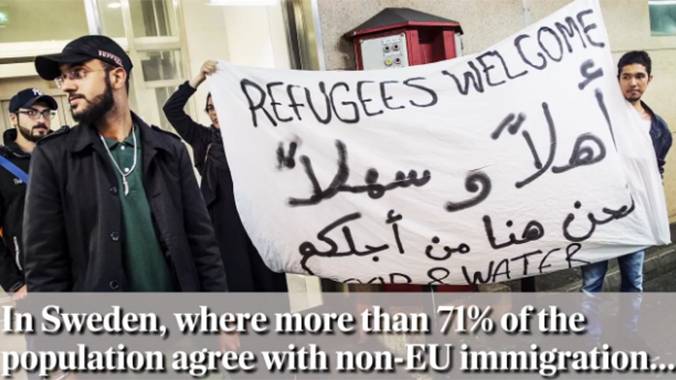 REFUGEES WELCOME
أهلاً و سهلاً
نحن هنا من أجلكم
& WATER
In Sweden, where more than 71% of the
population agree with non-EU immigration...